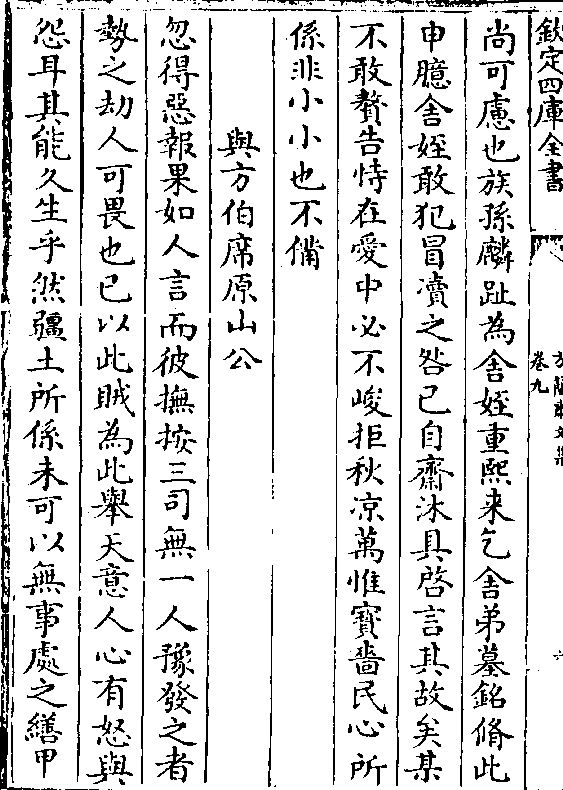 欽定四庫全書
卷九
尚可慮也族孫麟趾為舍姪重熙来乞舍弟墓銘脩此
申臆舍姪敢犯冒瀆之咎已自齋沐具啓言其故矣某
不敢贅告恃在愛中必不峻拒秋凉萬惟寶嗇民心所
係非小小也不備
與方伯席原山公
忽得惡報果如人言而彼撫按三司無一人豫發之者
勢之劫人可畏也已以此賊為此舉天意人心有怒與
怨耳其能久生乎然疆土所係未可以無事處之繕甲